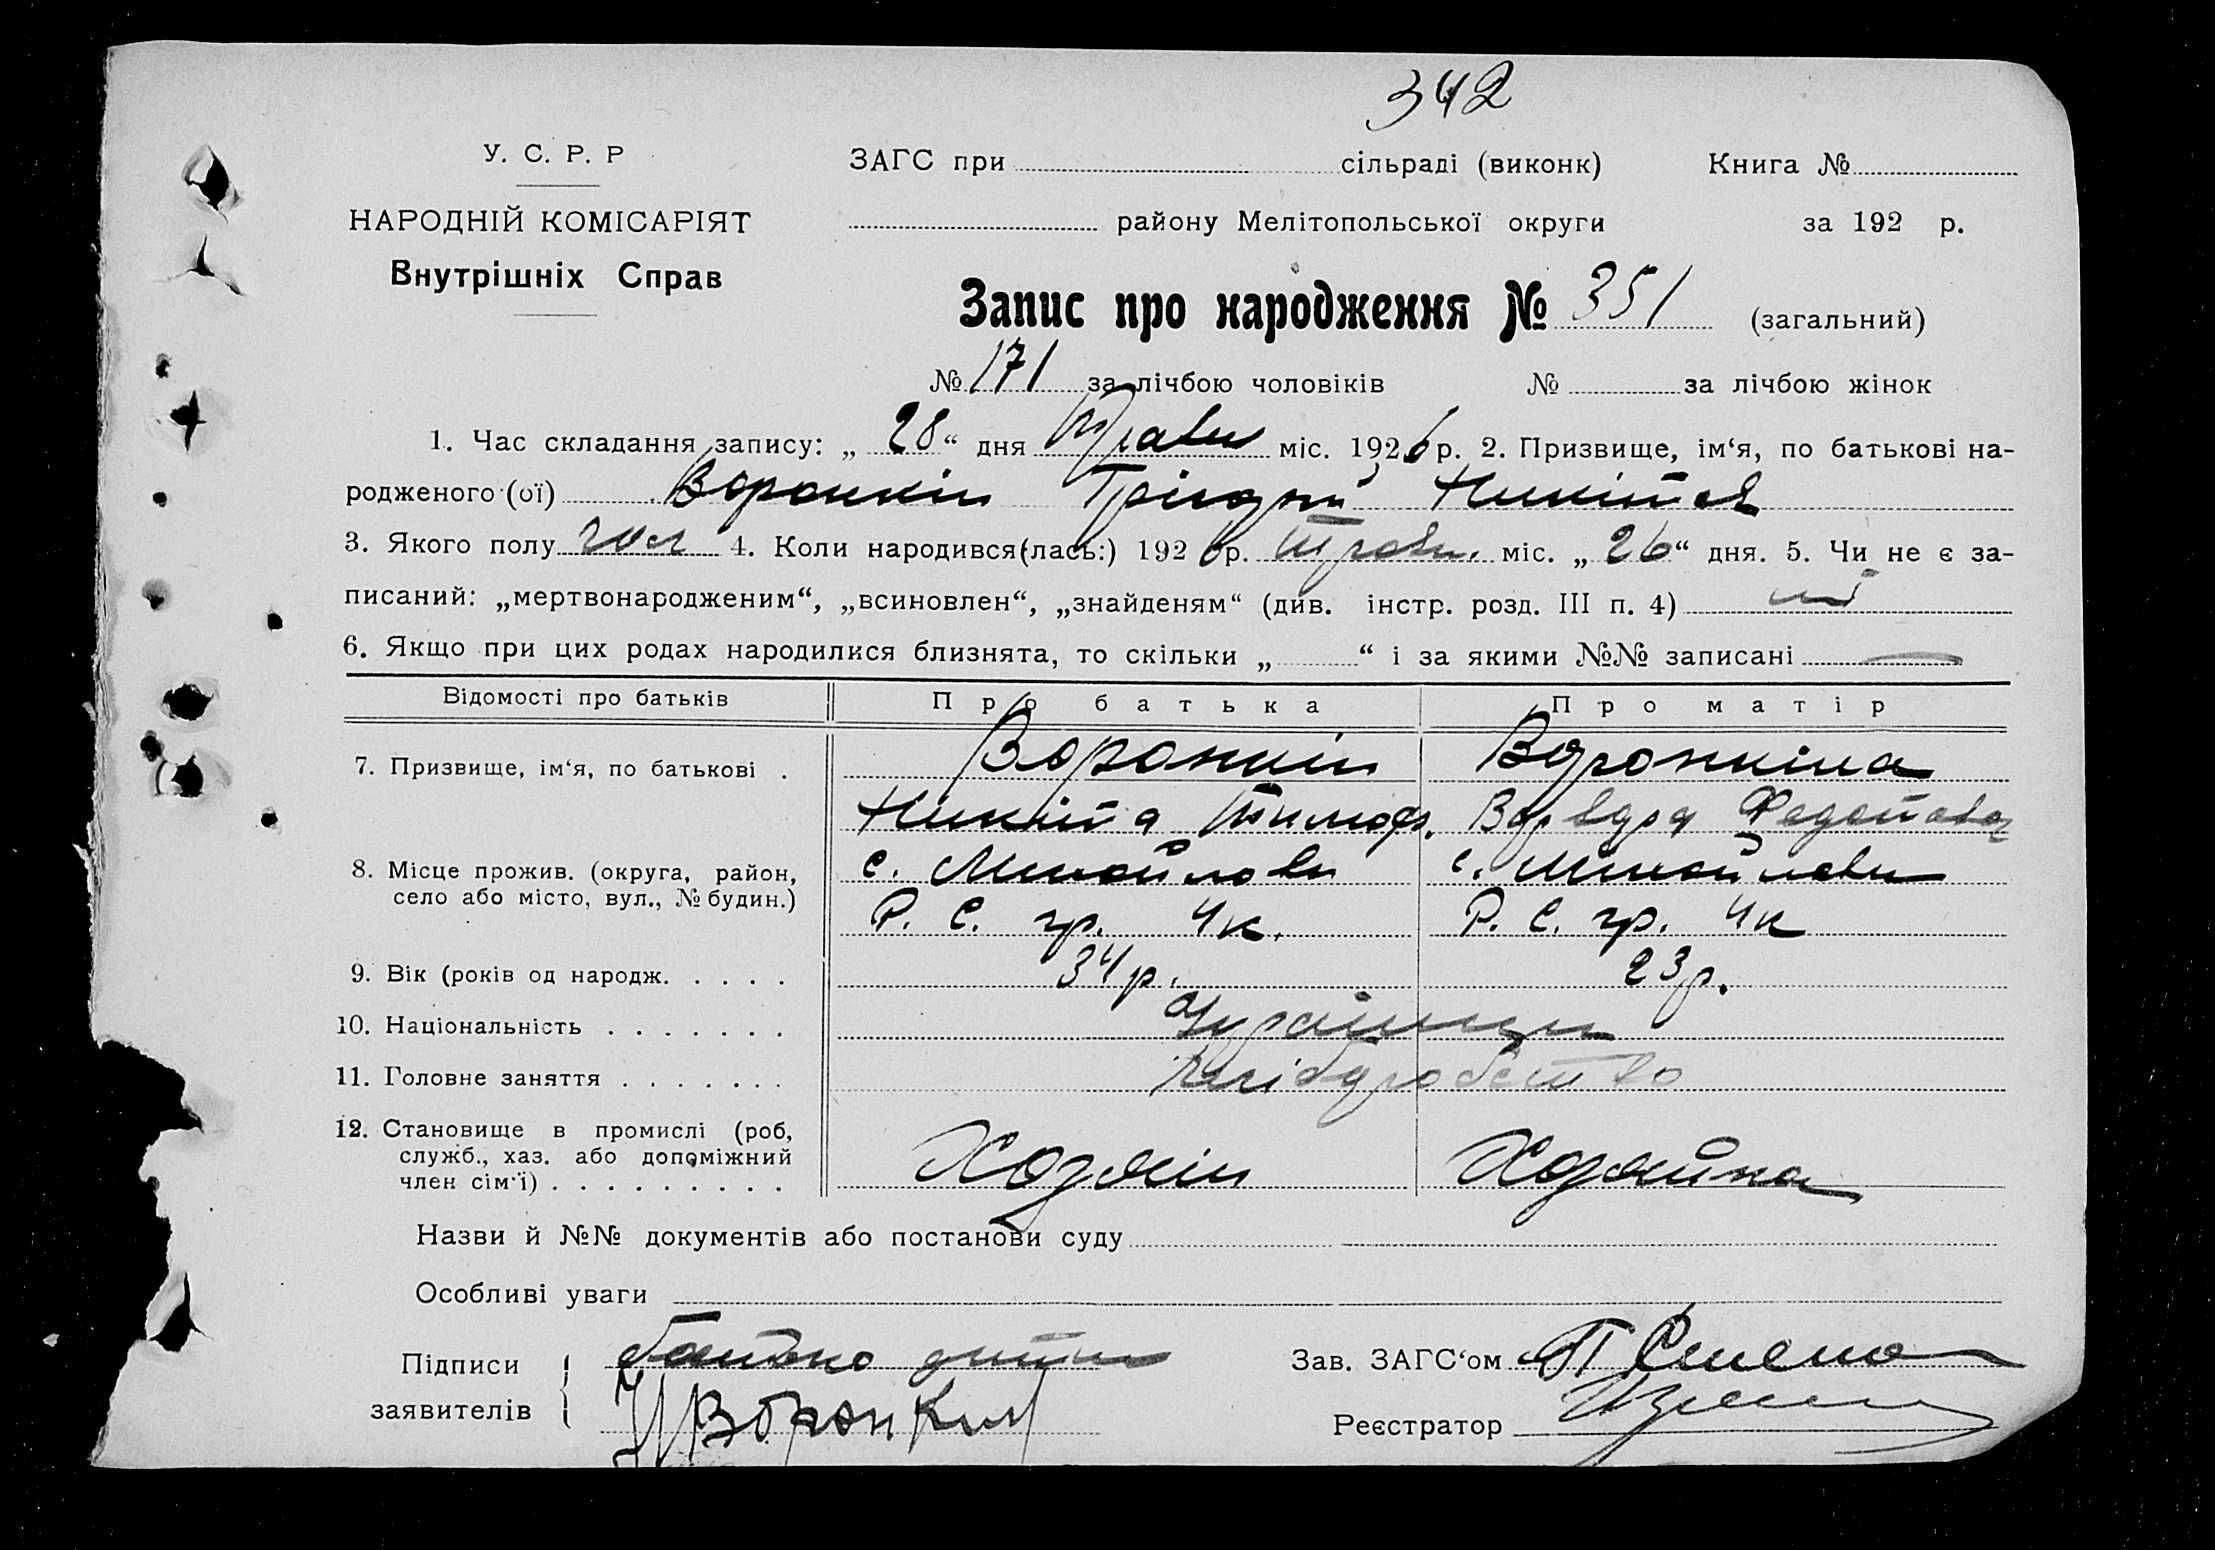 342
У. С. Р. Р
ЗАГС при сільраді (виконк) Книга №
НАРОДНІЙ КОМІСАРІЯТ
району Мелітопольської округи за 192 р.
Внутрішніх Справ
Запис про народження № 351 (загальний)
№ 171 за лічбою чоловіків № за лічбою жінок
1. Час складання запису: „ 28 “ дня Травн міс. 1926 р. 2. Призвище, ім‘я, по батькові на-
родженого (ої) Воронкін Никітов
3. Якого полу чол 4. Коли народився(лась:) 1926 р. Травн. міс. „ 26 “ дня. 5. Чи не є за-
писаний: „мертвонародженим“, „всиновлен“, „знайденям“ (див. інстр. розд. III п. 4) ні
6. Якщо при цих родах народилися близнята, то скільки „ “ і за якими №№ записані —
Відомості про батьків Про батька Про матір
7. Призвище, ім‘я, по батькові . Воронкін Воронкіна
Никіта Тимоф. Варвара Федотова
8. Місце прожив. (округа, район, село або місто, вул., № будин.) с. Михайловк с. Михайловк
Р. С. гр. Чк. Р. С. гр. Чк
9. Вік (років од народж. . . . . 34 р. 23 р.
10. Національність . . . . . . . Українци
11. Головне заняття . . . . . . . хлібробство
12. Становище в промислі (роб, служб., хаз. або допоміжний член сім‘ї) . . . . . . . . . Хозяїн Хозяйка
Назви й №№ документів або постанови суду
Особливі уваги
Підписи заявителів батько дитини
Воронкин
Зав. ЗАГС‘ом
Реєстратор